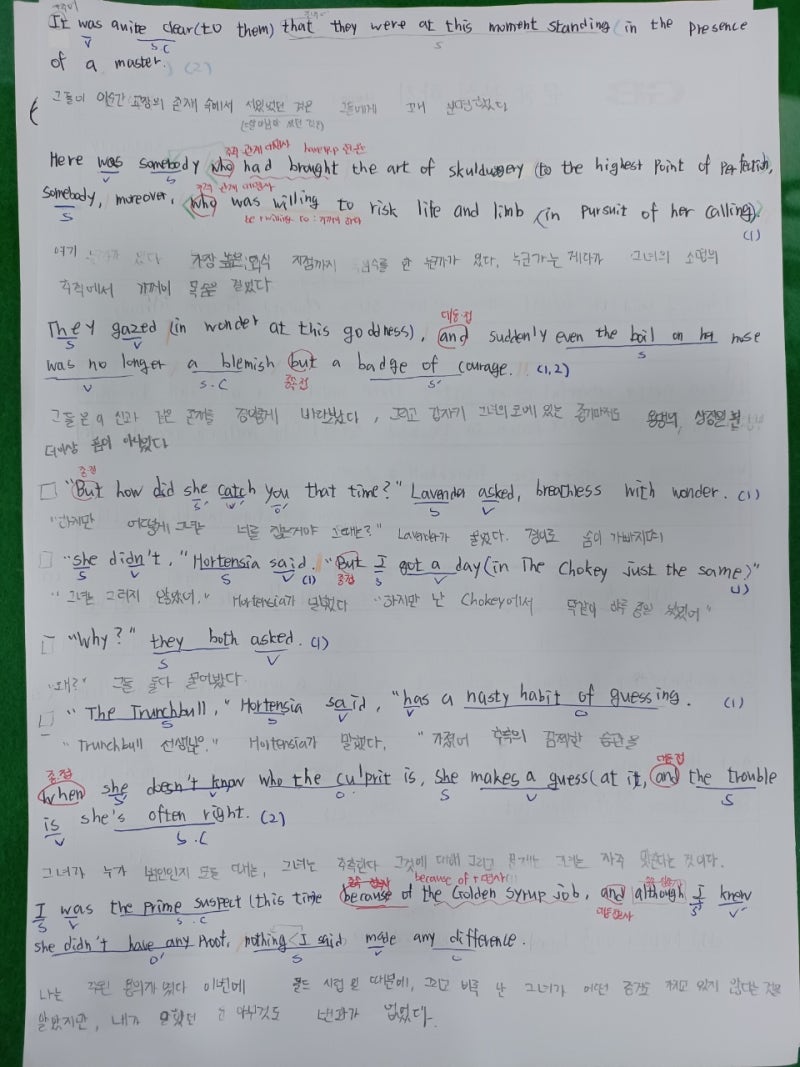 It was quite clear (to them) that they were at this moment standing (in the presence
V S.C S
of a master. (2)
그들이 이순간 교장의 존재 속에서 서있었던 것은 그들에게 꽤 분명했다
주격 관계대명사 have+p.p
Here was somebody who had brought the art of skulduggery (to the highest point of perfection,
V S 주격 관계 대명사
somebody, moreover, who was willing to risk life and limb (in pursuit of her calling).
S be willing to : 기꺼이 하다 (1)
여기 누군가가 있다 가장 높은 지점까지 를 한 누군가가 있다. 누군가는 게다가 그녀의 소명의
추격에서 기꺼이 목숨을 걸었다
대등접
They gazed (in wonder at this goddness), and suddenly even the boil on her nose
S V S
was no longer a blemish but a badge of courage. (1,2)
V S.C 종속접 S'
그들은 이 신과 같은 존재를 경이롭게 바라보았다, 그리고 갑자기 그녀의 코에 있는 종기마저도 용기의 상징일뿐
더이상 흠이 아니었다
종접
□ "But how did she catch you that time?" Lavender asked, breathless with wonder. (1)
S' V' O' S V
"하지만 어떻게 그녀는 너를 잡은거야 그때는?" Lavender가 물었다. 경이로 숨이 가빠지며
□ "she didn't," Hortensia said. "But I got a day (in The Chokey just the same)"
S V S V (1) 종접 S V (1)
"그녀는 그러지 않았어," Hortensia가 말했다 "하지만 난 Chokey에서 똑같이 하루 종일 있었어"
□ "Why?" they both asked. (1)
S V
"왜?" 그들 둘다 물어봤다.
□ "The Trunchbull," Hortensia said, "has a nasty habit of guessing. (1)
S S V V O
"Trunchbull 선생님은," Hortensia가 말했다, "가졌어 추측의 끔찍한 습관을
종접 대등접
When she doesn't know who the culprit is, she makes a guess (at it, and the trouble
S' V' O' S V S
is she's often right. (2)
V S.C
그녀가 누가 범인인지 모를 때는, 그녀는 추측한다 그것에 대해 그리고 문제는 그녀는 자주 맞춘다는 것이다.
because of + 명사
I was the prime suspect (this time because of the Golden syrup job, and although I knew
S V S.C S' V'
she didn't have any proof, nothing I said made any difference.
O' S V O
나는 주된 용의자였다 이번에 골드 시럽 일 때문에, 그리고 비록 난 그녀가 어떤 증거도 가지고 있지 않다는 것을
알았지만, 내가 말했던 건 아무것도 변화가 없었다.